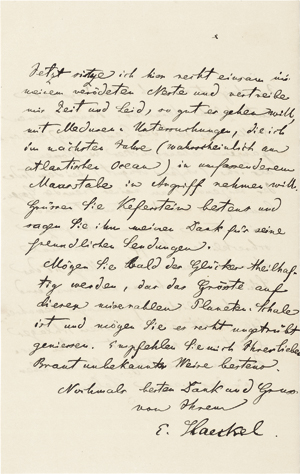 Jetzt sitze ich hier recht einsam in
meinem verödeten Neste und vertreibe
mir Zeit und Leid, so gut es gehen will,
mit Medusen-Untersuchungen, die ich
im nächsten Jahre (wahrscheinlich am
atlantischen Ocean) in umfassenderem
Maasstabe in Angriff nehmen will.
Grüssen Sie Keferstein bestens und
sagen Sie ihm meinen Dank für seine
freundlichen Sendungen.
Mögen Sie bald des Glückes theilhaf-
tig werden, das das Grösste auf
diesem miserablen Planeten-Schale
ist und mögen Sie es recht ungetrübt
geniessen. Empfehlen Sie mich Ihrer lieben
Braut unbekannter Weise bestens.
Nochmals besten Dank und Gruss
von Ihrem
E. Haeckel.